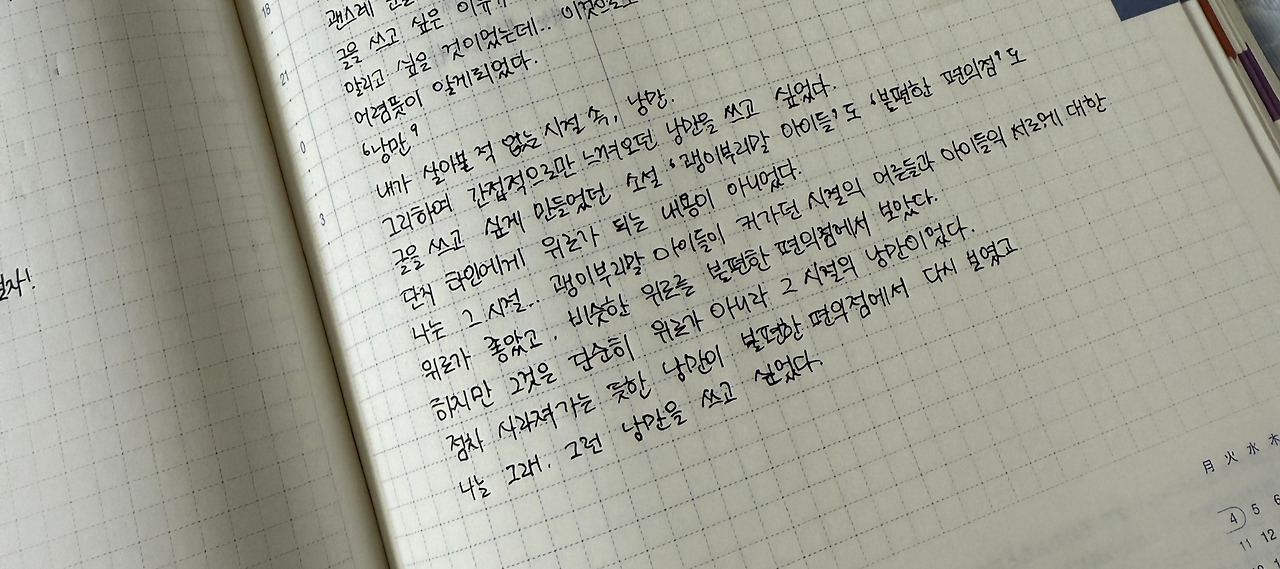 괜스레
글을 쓰고 싶은 이유
알리고 싶을 것이었는데.. 이것으로
어렴풋이 알게되었다.
'낭만'
내가 살아본 적 없는 시절 속, 낭만.
그리하여 간접적으로만 느껴오던 낭만을 쓰고 싶었다.
글을 쓰고 싶게 만들었던 소설 '괭이부리말 아이들'도 '불편한 편의점'도
단지 타인에게 위로가 되는 내용이 아니었다.
나는 그 시절.. 괭이부리말 아이들이 커가던 시절의 어른들과 아이들의 서로에 대한
위로가 좋았고. 비슷한 위로를 불편한 편의점에서 보았다.
하지만 그것은 단순히 위로가 아니라 그 시절의 낭만이었다.
점차 사라져가는 듯한 낭만이 불편한 편의점에서 다시 보였고
나는 그래. 그런 낭만을 쓰고 싶었다.
18
21
0
3
月 火 水 木
4 5 6
11 12